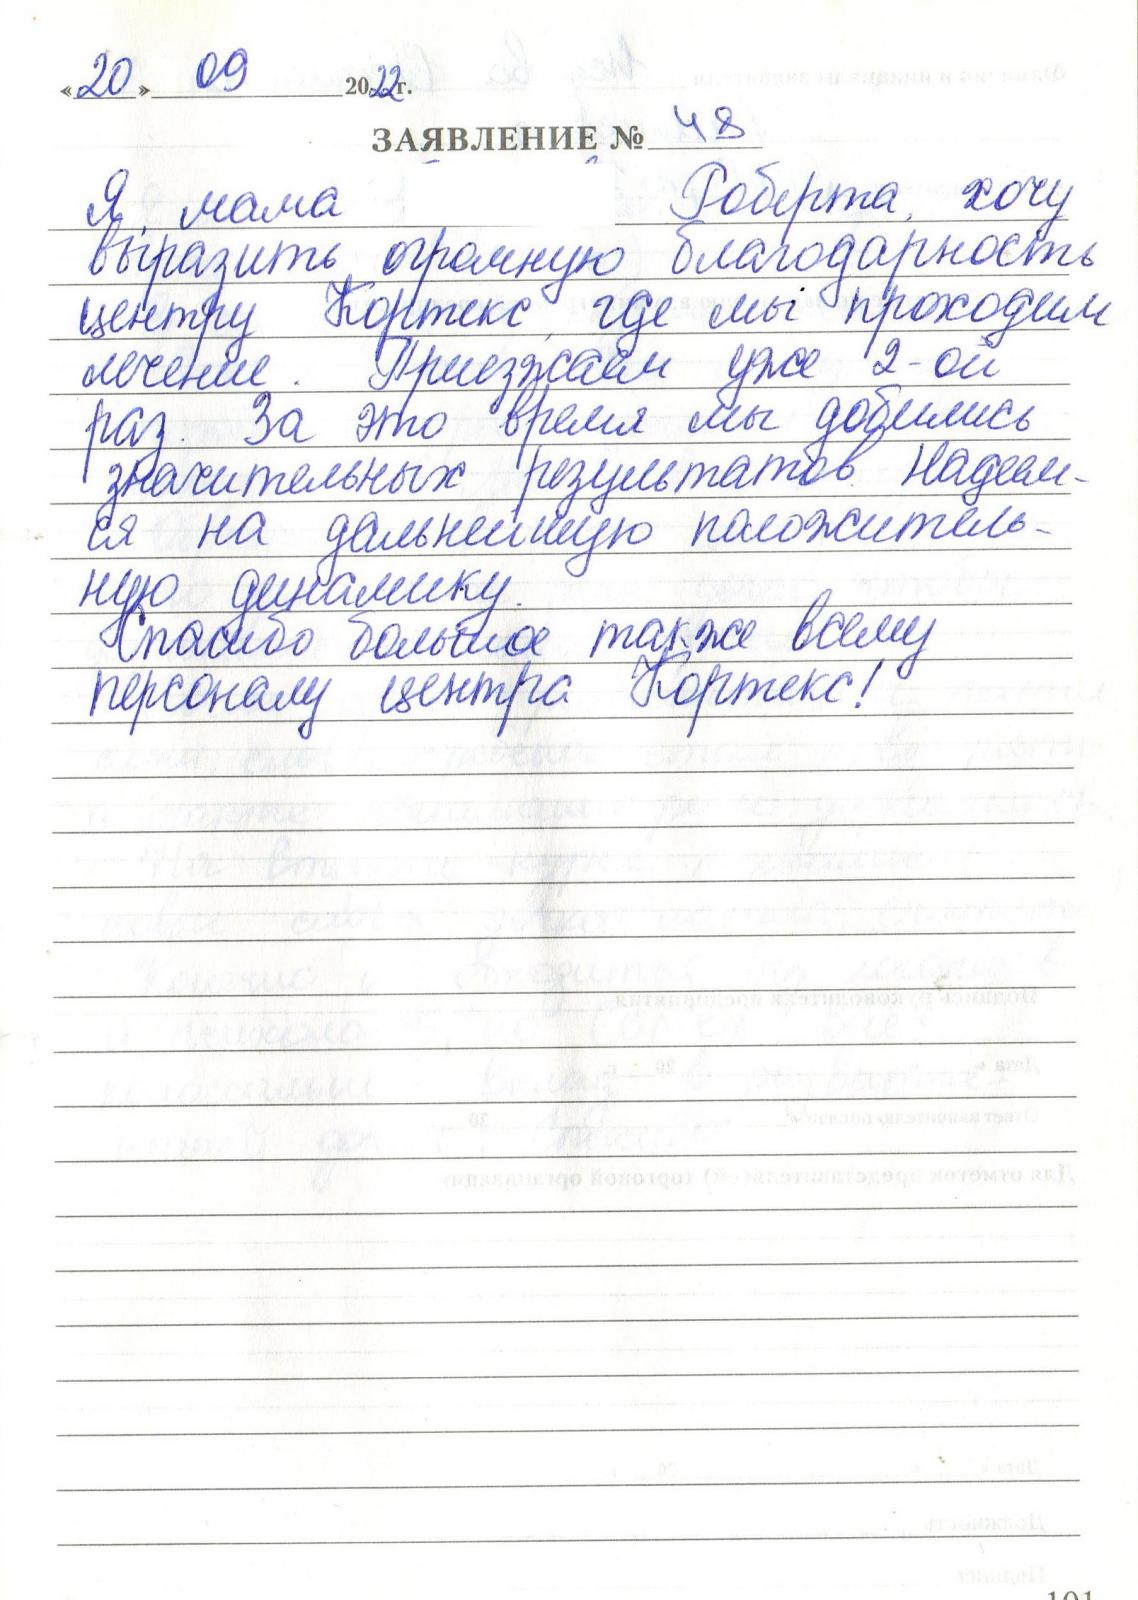 «20» 09 2022 г.
ЗАЯВЛЕНИЕ № 48
Я, мама Роберта, хочу
выразить огромную благодарность
центру Кортекс, где мы проходим
лечение. Приезжаем уже 2-ой
раз. За это время мы добились
значительных результатов. Надеем-
ся на дальнейшую положитель-
ную динамику.
Спасибо большое также всему
персоналу центра Кортекс!